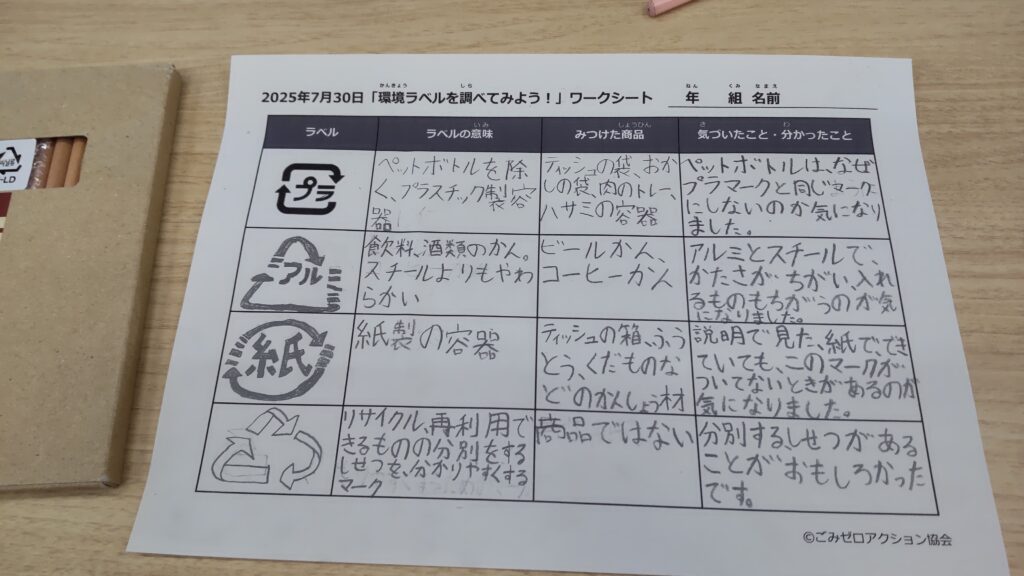 2025年7月30日「環境ラベルを調べてみよう！」ワークシート
かんきょう
しら
年 組 名前
ねん くみ なまえ
ラベル
ラベルの意味
いみ
みつけた商品
しょうひん
気づいたこと・分かったこと
き わ
プラ
ペットボトルを除
く、プラスチック製容
器
ティッシュの袋、おか
しの袋、肉のトレー、
ハサミの容器
ペットボトルは、なぜ
プラマークと同じマーク
にしないのか気になり
ました。
アルミ
飲料、酒類のかん。
スチールよりもやわ
らかい
ビールかん、
コーヒーかん
アルミとスチールで、
かたさがちがい、入れ
るものもちがうのが気
になりました。
紙
紙製の容器
ティッシュの箱、ふう
とう、くだものな
どのかんしょう材
説明で見た、紙で、でき
ていても、このマークが
ついてないときがあるのが
気になりました。
リサイクル、再利用で
きるものの分別をする
しせつを、分かりやすくする
マーク
商品ではない
分別するしせつがある
ことがおもしろかった
です。
©ごみゼロアクション協会